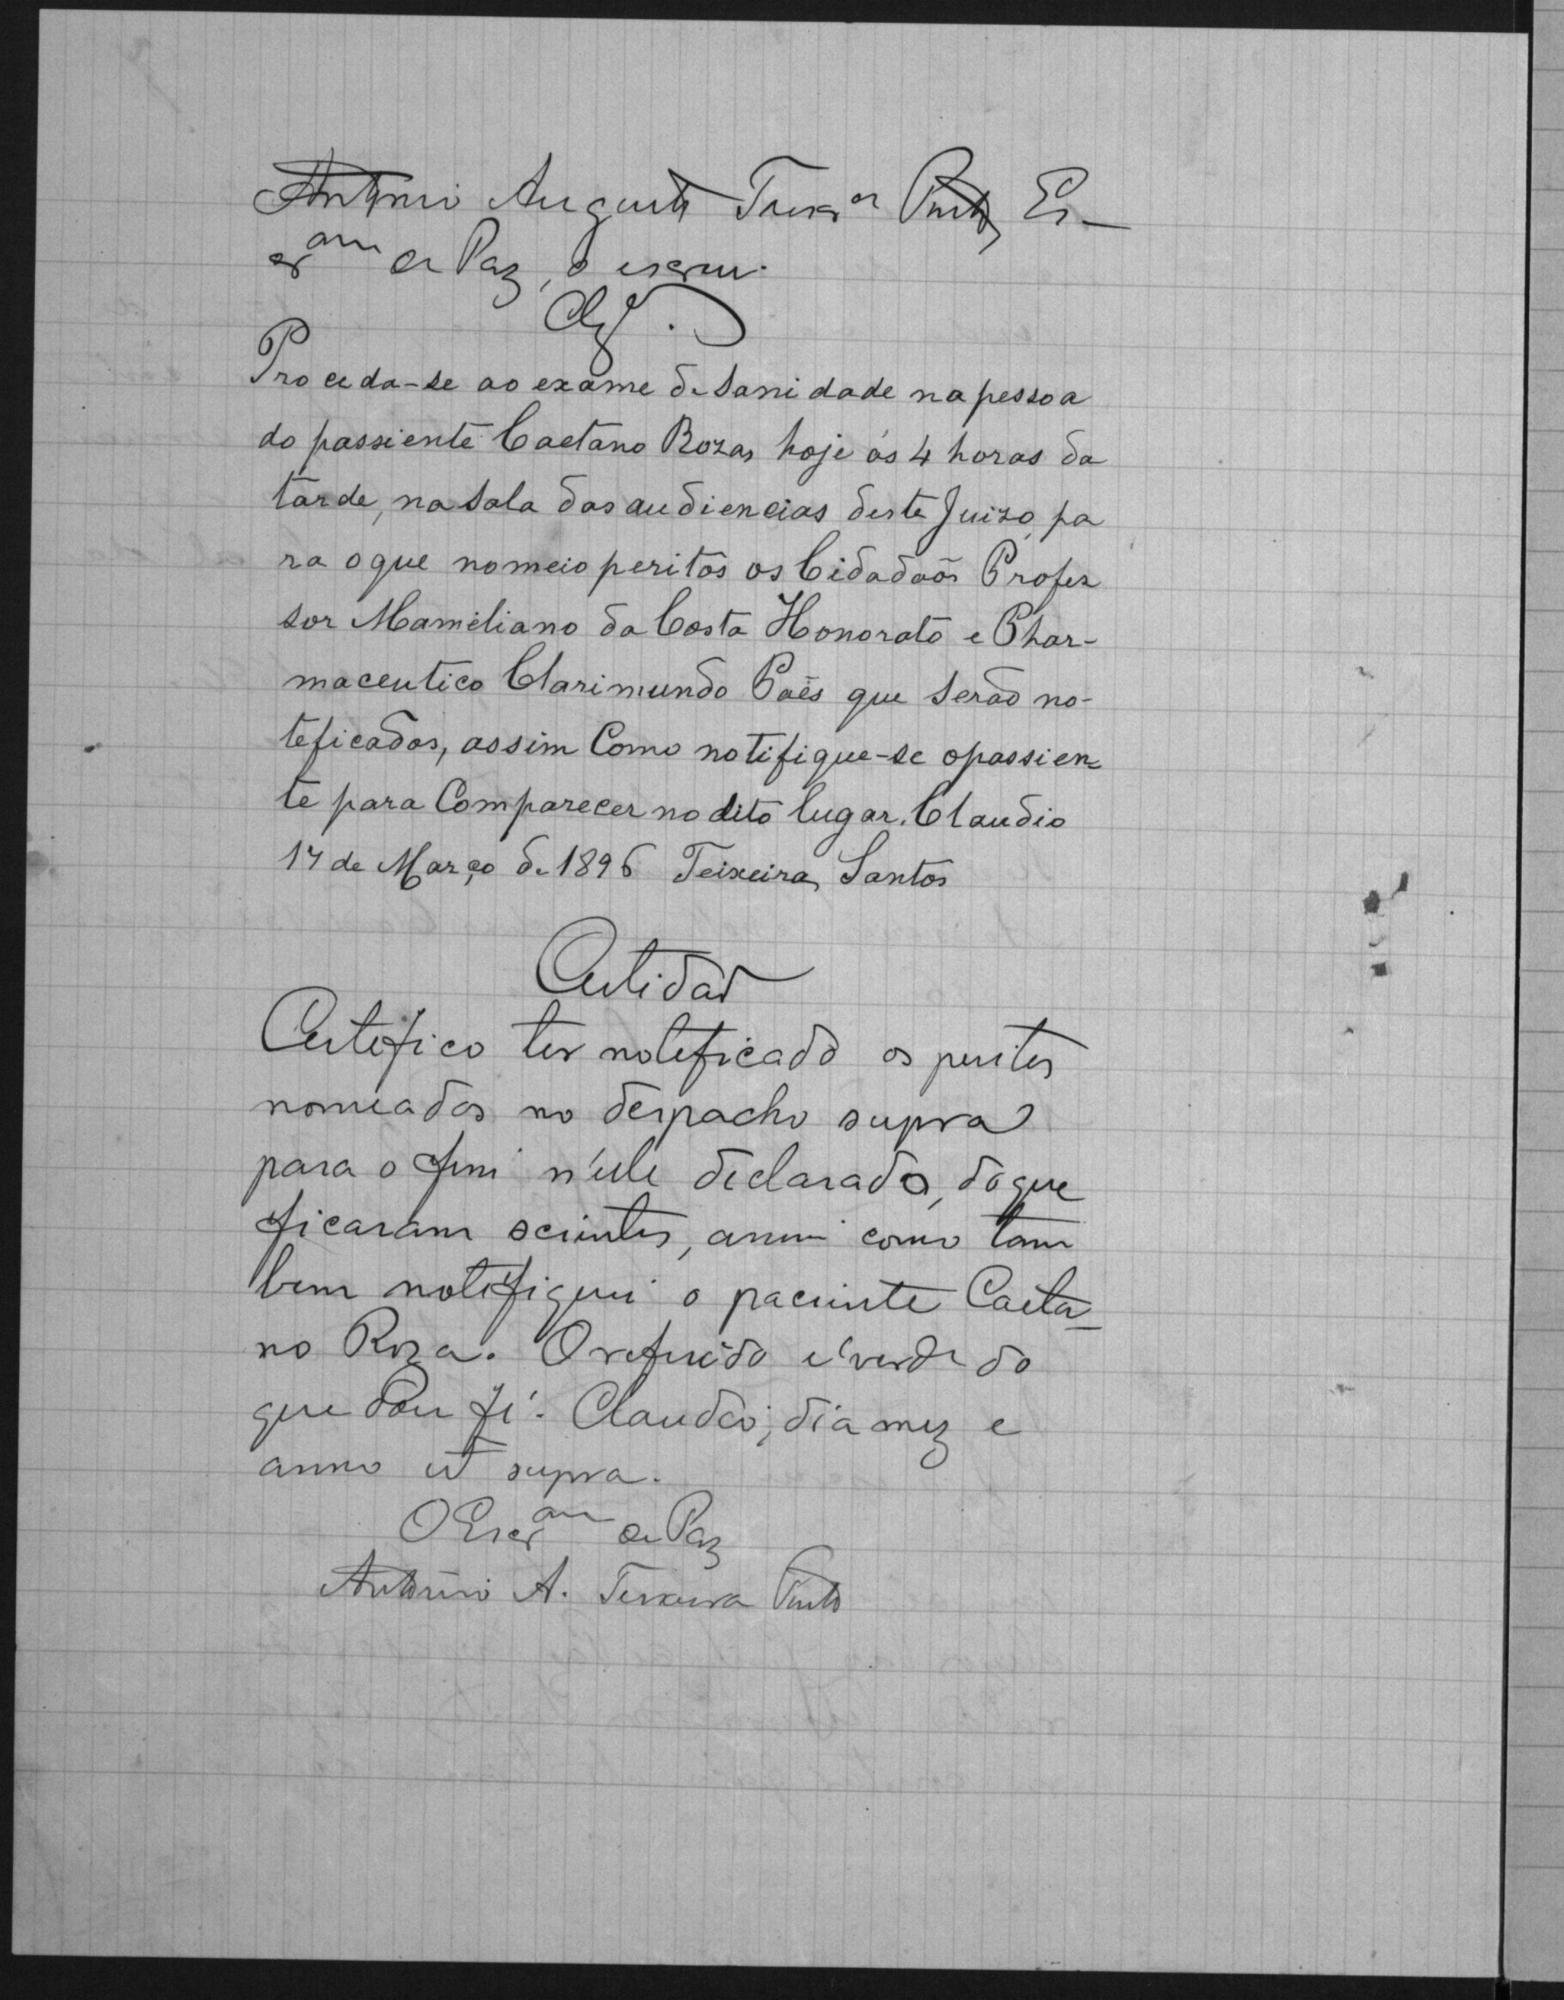 Antonio Augusto Teixrª Pinto, Es-
cram de Paz, o escrevi.
Clz.
Proceda-se ao exame de Sanidade na pessoa
do passiente Caetano Roza, hoje ás 4 horas da
tarde, na Sala das audiencias deste Juizo, pa
ra o que nomeio peritos os Cidadaõs Profes
sor Mameliano da Costa Honorato e Phar-
maceutico Clarimundo Paes que serão no-
teficados, assim Como notifique-se o passien=
te para Comparecer no dito lugar. Claudio
17 de Março de 1896 Teixeira Santos
Certidão
Certefico ter noteficado os peritos
nomeados no despacho supra
para o fim n'elle declarado, do que
ficaram scientes, assim como tam
bem notefiquei o paciente Caeta-
no Roza. O referido é verde do
que dou fé. Claudio, dia mez e
anno ut supra.
O Escram de Paz
Antonio A. Teixeira Pinto